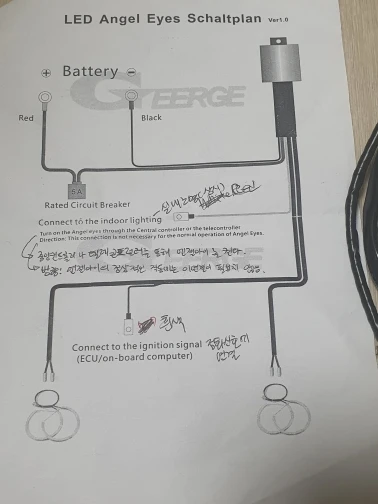 LED Angel Eyes Schaltplan Ver1.0
+ Battery −
GTEERGE
Red
Black
5A
Rated Circuit Breaker
Connect to the indoor lighting
Turn on the Angel eyes through the Central controller or the telecontroller
Direction: This connection is not necessary for the normal operation of Angel Eyes.
통해 엔젤아이를 켠다.
엔젤아이의 정상적인 작동에는 필요치 않음.
흰색
Connect to the ignition signal 점화신호에
(ECU/on-board computer) 연결